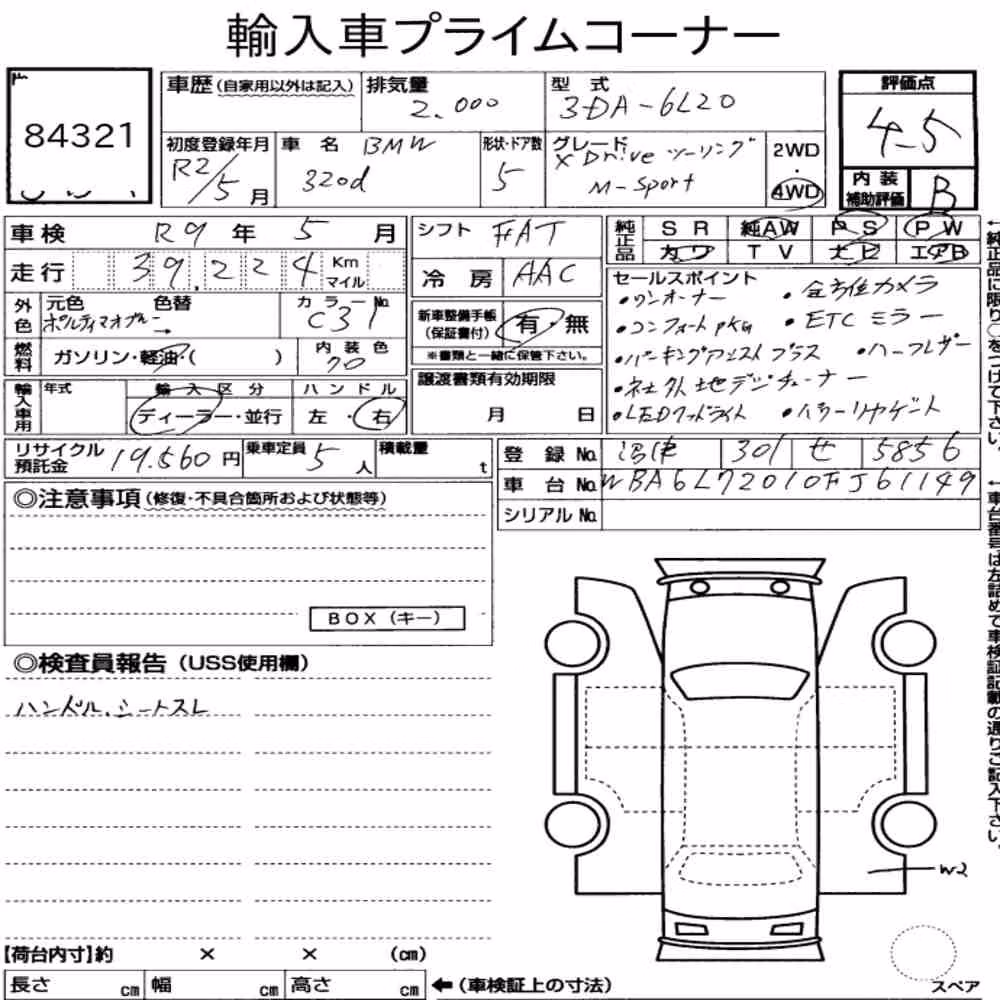 輸入車プライムコーナー
84321
車歴 (自家用以外は記入)
排気量
2.000
型式
3DA-6L20
評価点
4.5
初度登録年月
R2/5月
車名 BMW
320d
形状・ドア数
5
グレード
X Drive ツーリング
M-Sport
2WD
・
4WD
内装
補助評価
B
車検 R9年 5月
走行 39,224 Km
マイル
シフト FAT
冷房 AAC
純正品
SR 純AW PS PW
カワ TV ナビ エアB
外色
元色 色替
ポルティマオブルー →
カラーNo.
C31
燃料
ガソリン・軽油・( )
内装色
70
新車整備手帳
(保証書付)
有・無
※書類と一緒に保管下さい。
セールスポイント
・ワンオーナー ・全方位カメラ
・コンフォートpkg ・ETCミラー
・パーキングアシスト プラス ・ハーフレザー
・社外地デジチューナー
・LEDヘッドライト ・パワーリヤゲート
輸入車用
年式
輸入区分
ディーラー・並行
ハンドル
左・右
譲渡書類有効期限
月 日
リサイクル
預託金
19.560円
乗車定員
5人
積載量
t
登録No. 沼津 301 せ 5856
車台No. WBA6L72010FJ61149
シリアルNo.
◎注意事項 (修復・不具合箇所および状態等)
BOX(キー)
◎検査員報告 (USS使用欄)
ハンドル、シートスレ
W2
【荷台内寸】約 × × (cm)
長さ cm 幅 cm 高さ cm
←(車検証上の寸法)
スペア
←純正品に限り○をつけて下さい。
←車台番号は左詰めで車検証記載の通りご記入下さい。